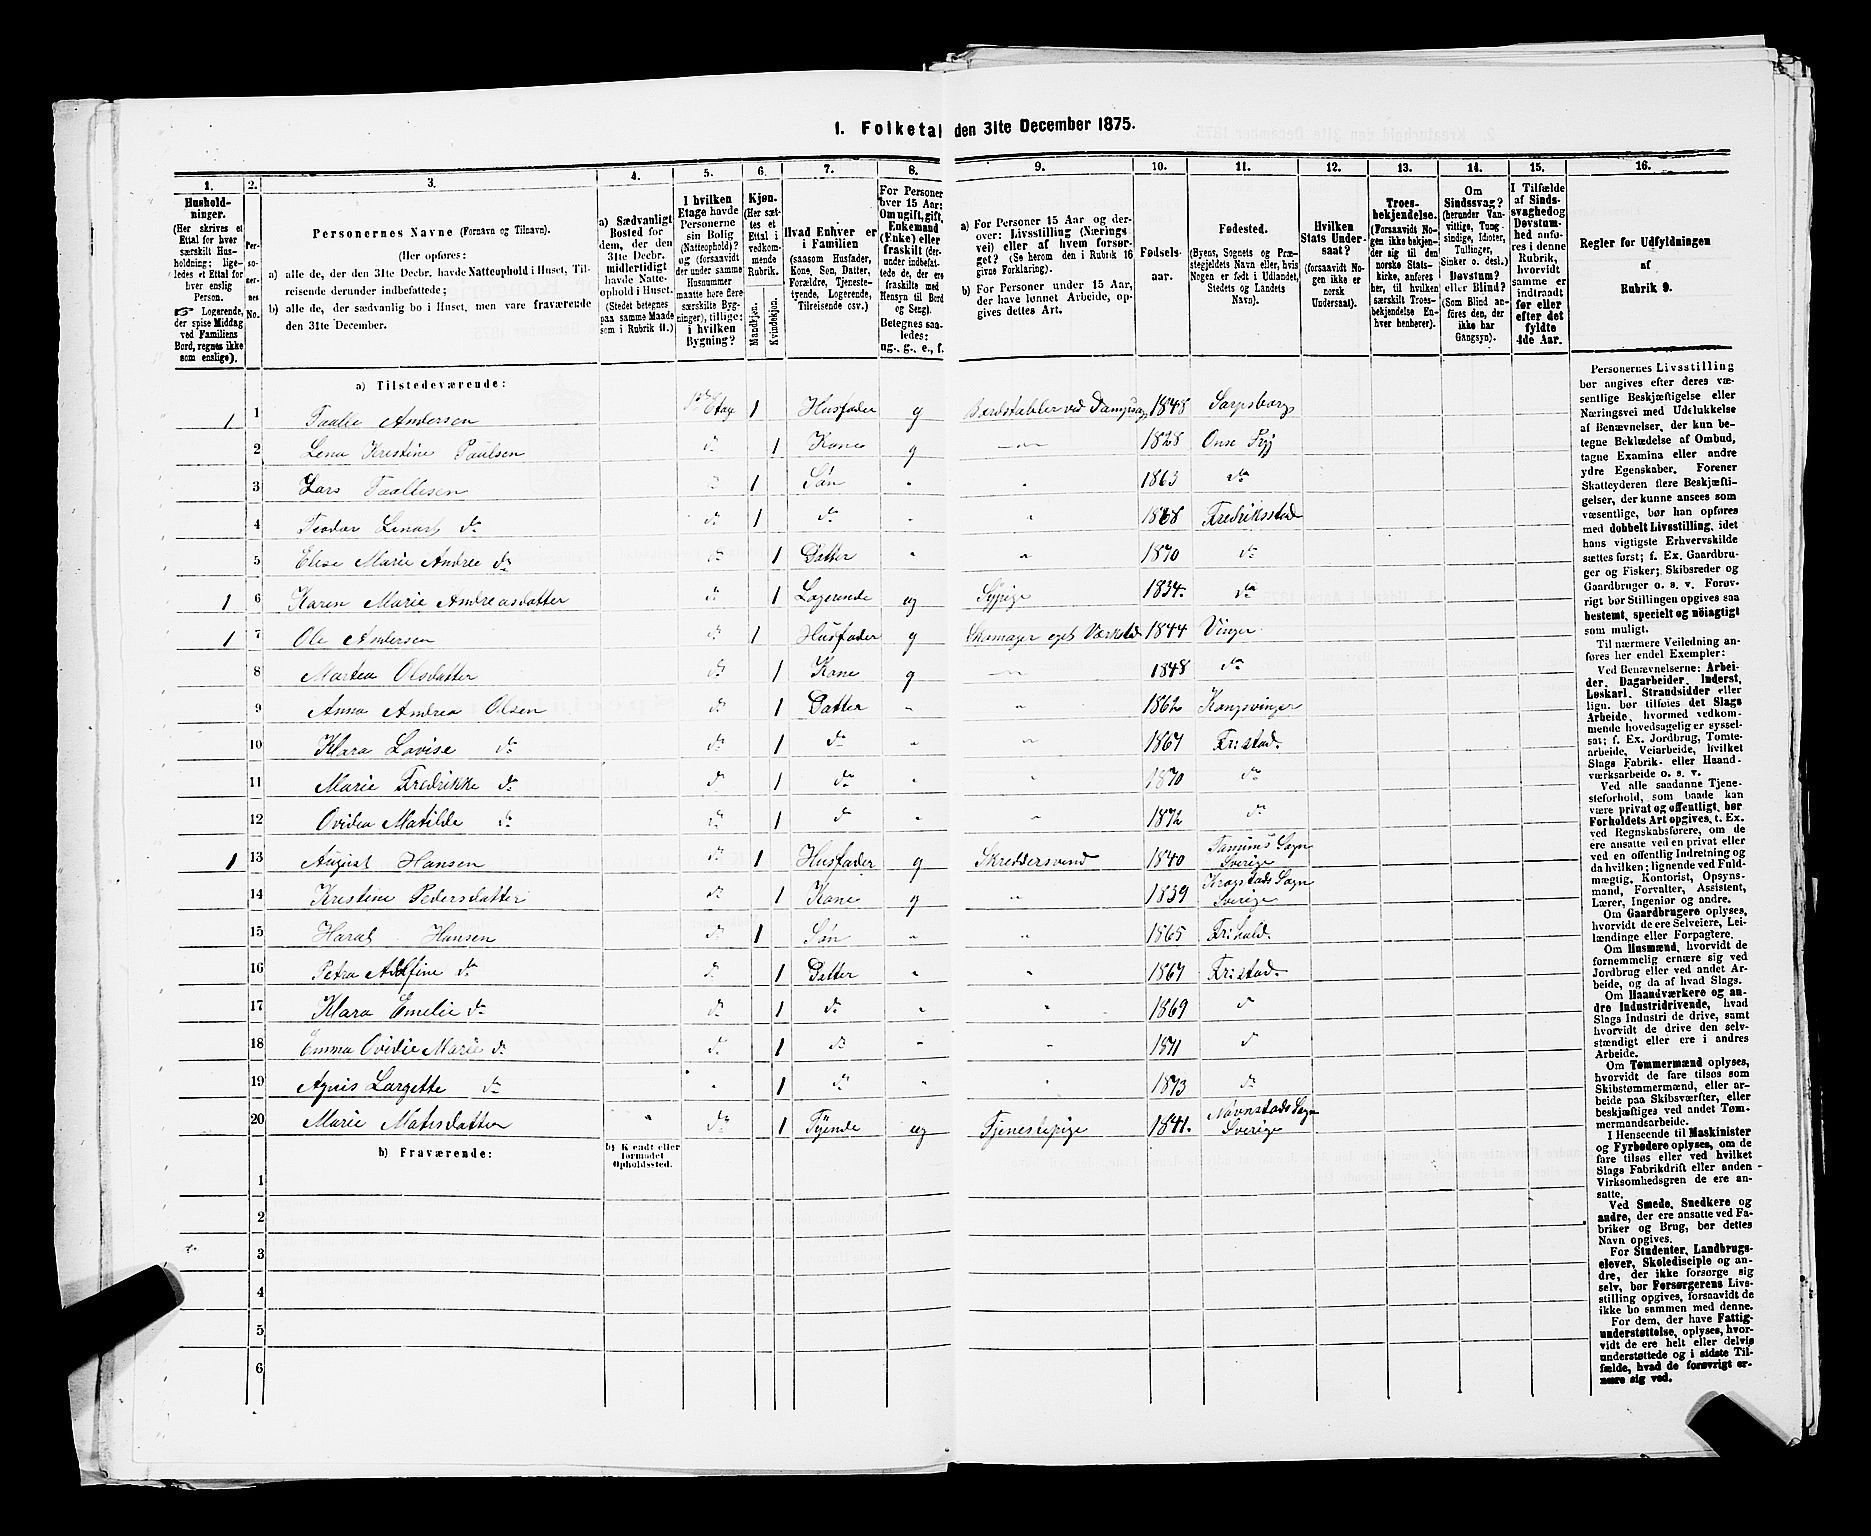 1. Folketal den 31te December 1875.
1. 2. 3. 4. 5. 6. 7. 8. 9. 10. 11. 12. 13. 14. 15. 16.
Hushold-
ninger.
(Her skrives et
Ettal for hver
særskilt Hus-
holdning; lige-
ledes et Ettal for
hver enslig
Person.
☞ Logerende,
der spise Middag
ved Familiens
Bord, regnes ikke
som enslige).
Per-
so-
ner-
nes
No.
Personernes Navne (Fornavn og Tilnavn).
(Her opføres:
a) alle de, der den 31te Decbr. havde Natteophold i Huset, Til-
reisende derunder indbefattede;
b) alle de, der sædvanlig bo i Huset, men vare fraværende
den 31te December.
a) Sædvanligt
Bosted for
dem, der den
31te Decbr.
midlertidigt
havde Natte-
ophold i Huset.
(Stedet betegnes
paa samme Maade
som i Rubrik 11.)
I hvilken
Etage havde
Personerne
sin Bolig
(Natteophold)?
og (forsaavidt
der under samme
Husnummer
maatte høre flere
særskilte Byg-
ninger), tillige:
i hvilken
Bygning?
Kjøn.
(Her sæt-
tes et
Ettal i
vedkom-
mende
Rubrik.
Mandkjøn.
Kvindekjøn.
Hvad Enhver er
i Familien
(saasom Husfader,
Kone, Søn, Datter,
Forældre, Tjeneste-
tyende, Logerende,
Tilreisende osv.)
For Personer
over 15 Aar:
Om ugift, gift,
Enkemand
(Enke) eller
fraskilt (der-
under indbefat-
tede de, der ere
fraskilte med
Hensyn til Bord
og Seng).
Betegnes saa-
ledes:
ug., g., e., f.
a) For Personer 15 Aar og der-
over: Livsstilling (Nærings
vei) eller af hvem forsør-
get? (Se herom den i Rubrik 16
givne Forklaring).
b) For Personer under 15 Aar,
der have lønnet Arbeide, op-
gives dettes Art.
Fødsels-
aar.
Fødested.
(Byens, Sognets og Præ-
stegjeldets Navn eller, hvis
Nogen er født i Udlandet,
Stedets og Landets
Navn).
Hvilken
Stats Under-
saat?
(forsaavidt No-
gen ikke er
norsk
Undersaat).
Troes-
bekjendelse.
(Forsaavidt No-
gen ikke bekjen-
der sig til den
norske Stats-
kirke, anføres
her, til hvilken
særskilt Troes-
bekjendelse En-
hver henhører).
Om
Sindssvag?
(herunder Van-
vittige, Tung-
sindige, Idioter,
Tullinger,
Sinker o. desl.)
Døvstum?
eller Blind?
(Som Blind an-
føres den, der
ikke har
Gangsyn).
I Tilfælde
af Sinds-
svaghed og
Døvstum-
hed anfø-
res i denne
Rubrik,
hvorvidt
samme er
indtraadt
før eller
efter det
fyldte
4de Aar.
Regler før Udfyldningen
af
Rubrik 9.
a) Tilstedeværende:
1 1 Taalie Andersen 1ste Etage 1 Husfader g Bordstabler ved Dampsag 1848 Sarpsborg
2 Lena Kristine Paulsen do 1 Kone g 1828 Onsø
3 Lars Taaliesen do 1 Søn 1863 do
4 Teodor Linart do do 1 do 1868 Fredriksstad
5 Elise Marie Andrea do do 1 Datter 1870 do
1 6 Karen Marie Andreasdatter do 1 Logerende ug Sypige 1834 do
1 7 Ole Andersen do 1 Husfader g Skomager eget Værksted 1844 Vinger
8 Martea Olsdatter do 1 Kone g 1848 do
9 Anna Andrea Olsen do 1 Datter 1862 Kongsvinger
10 Klara Lovise do do 1 do 1867 Fr.stad.
11 Marie Fredrikke do do 1 do 1870 do
12 Ovidia Matilde do do 1 do 1872 do
1 13 August Hansen do 1 Husfader g Skreddersvend 1840 Tanums Sogn Sverige
14 Kristine Pedersdatter do 1 Kone g 1839 Krogstads Sogn Sverige
15 Haral Hansen do 1 Søn 1865 Fr.hald.
16 Petra Adolfine do do 1 Datter 1867 Fr.stad.
17 Klara Emelie do do 1 do 1869 do
18 Emma Ovidie Marie do do 1 do 1871 do
19 Agnis Largette do 1 do 1873 do
20 Marie Matisdatter do 1 Tyende ug Tjenestepige 1841. Sogn Sverige
b) Fraværende:
b) Kjendt eller
formodet
Opholdssted.
1
2
3
4
5
6
Personernes Livsstilling
bør angives efter deres væ-
sentlige Beskjæftigelse eller
Næringsvei med Udelukkelse
af Benævnelser, der kun be-
tegne Beklædelse af Ombud,
tagne Examina eller andre
ydre Egenskaber. Forener
Skatteyderen flere Beskjæfti-
gelser, der kunne ansees som
væsentlige, bør han opføres
med dobbelt Livsstilling, idet
hans vigtigste Erhvervskilde
sættes først; f. Ex. Gaardbru-
ger og Fisker; Skibsreder og
Gaardbruger o. s. v. Forøv-
rigt bør Stillingen opgives saa
bestemt, specielt og nøiagtigt
som muligt.
Til nærmere Veiledning an-
føres her endel Exempler:
Ved Benævnelserne: Arbei-
der, Dagarbeider, Inderst,
Løskarl, Strandsidder eller
lign. bør tilføies det Slags
Arbeide, hvormed vedkom-
mende hovedsagelig er syssel-
sat; f. Ex. Jordbrug, Tomte-
arbeide, Veiarbeide, hvilket
Slags Fabrik- eller Haand-
værksarbeide o. s. v.
Ved alle saadanne Tjene-
steforhold, som baade kan
være privat og offentligt, bør
Forholdets Art opgives, t. Ex.
ved Regnskabsførere, om de
ere ansatte ved en privat eller
ved en offentlig Indretning og
da hvilken; lignende ved Fuld-
mægtig, Kontorist, Opsyns-
mand, Forvalter, Assistent,
Lærer, Ingeniør og andre.
Om Gaardbrugere oplyses,
hvorvidt de ere Selveiere, Lei-
lændinge eller Forpagtere.
Om Husmænd, hvorvidt de
fornemmelig ernære sig ved
Jordbrug eller ved andet Ar-
beide, og da af hvad Slags.
Om Haandværkere og an-
dre Industridrivende, hvad
Slags Industri de drive, samt
hvorvidt de drive den selv-
stændigt eller ere i andres
Arbeide.
Om Tømmermænd oplyses,
hvorvidt de fare tilsøs som
Skibstømmermænd, eller ar-
beide paa Skibsværfter, eller
beskjæftiges ved andet Tøm-
mermandsarbeide.
I Henseende til Maskinister
og Fyrbødere oplyses, om de
fare tilsøs eller ved hvilket
Slags Fabrikdrift eller anden
Virksomhedsgren de ere an-
satte.
Ved Smede, Snedkere og
andre, der ere ansatte ved Fa-
briker og Brug, bør dettes
Navn opgives.
For Studenter, Landbrugs-
elever, Skoledisciple og an-
dre, der ikke forsørge sig
selv, bør Forsørgerens Livs-
stilling opgives, forsaavidt de
ikke bo sammen med denne.
For dem, der have Fattig-
understøttelse, oplyses, hvor-
vidt de ere helt eller delvis
understøttede og i sidste Til-
fælde, hvad de forøvrigt er-
nære sig ved.